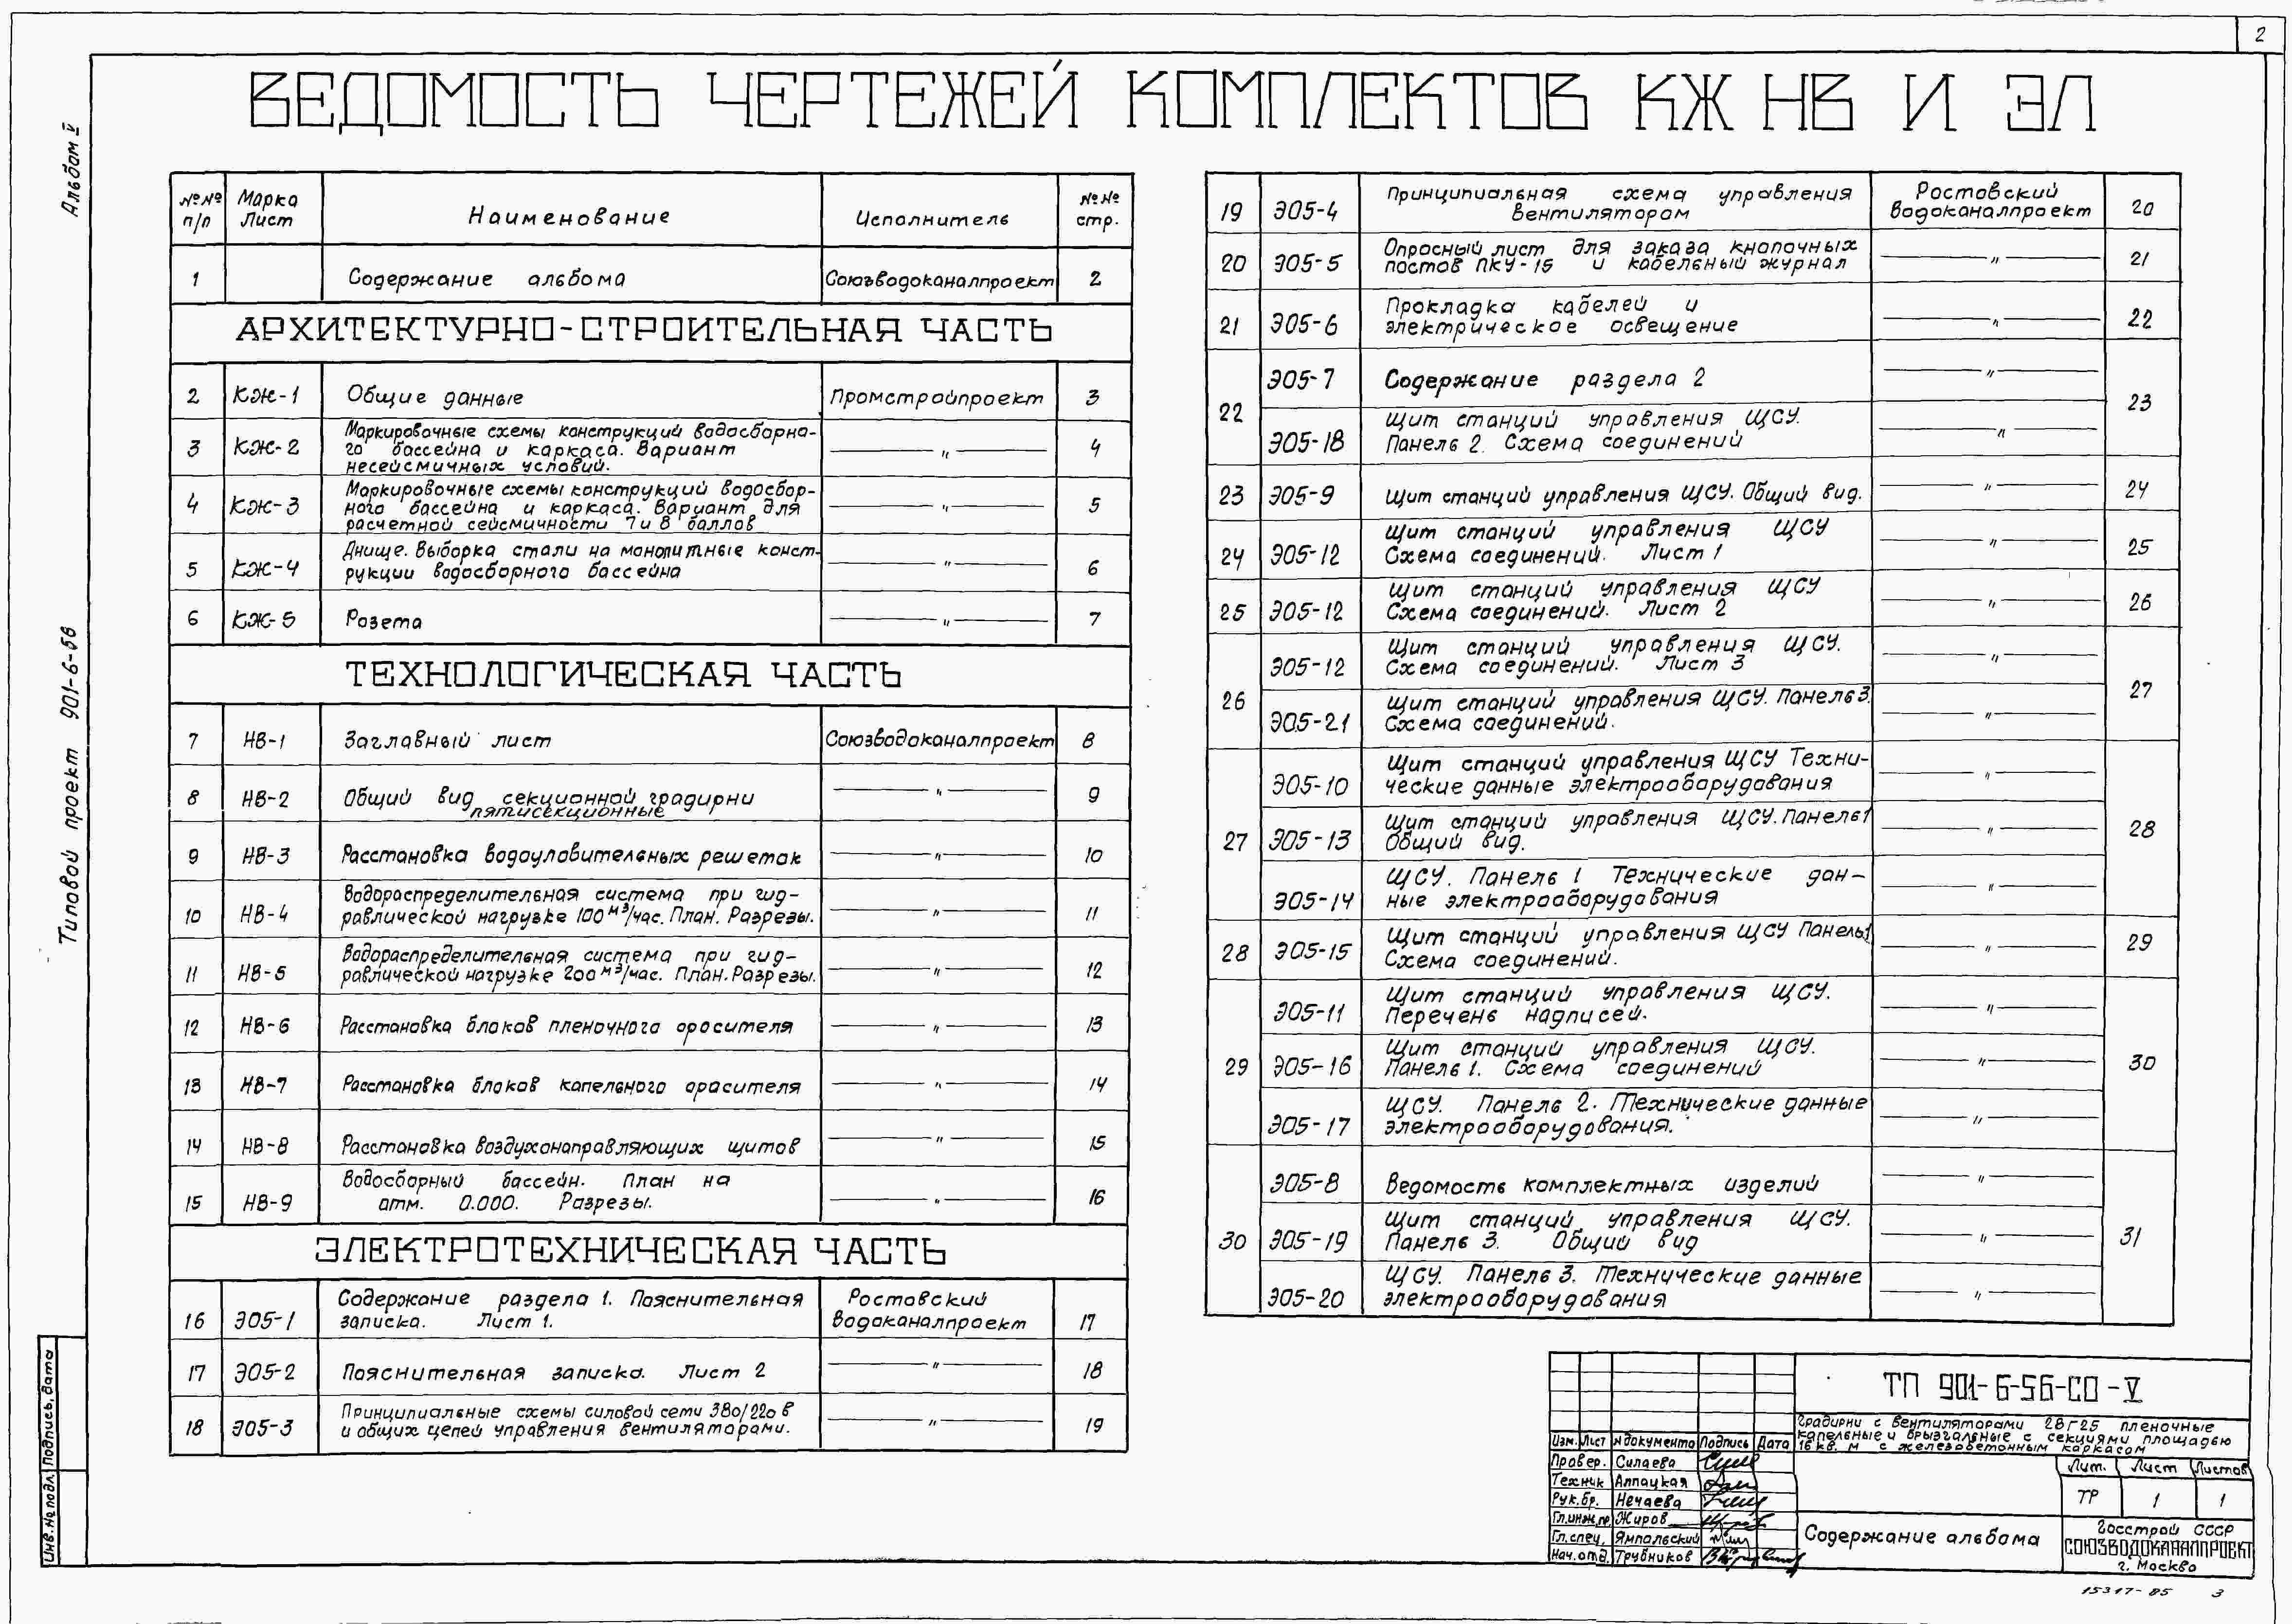 2
ВЕДОМОСТЬ ЧЕРТЕЖЕЙ КОМПЛЕКТОВ КЖ НВ И ЭЛ
Альбом V
Типовой проект 901-6-56
Инв.№ подл. Подпись, дата
№№ п/п Марка Лист Наименование Исполнитель №№ стр.
1 Содержание альбома Союзводоканалпроект 2
АРХИТЕКТУРНО-СТРОИТЕЛЬНАЯ ЧАСТЬ
2 КЖ-1 Общие данные Промстройпроект 3
Маркировочные схемы конструкций водосборно-
3 КЖ-2 го бассейна и каркаса. Вариант —"— 4
несейсмичных условий.
Маркировочные схемы конструкций водосбор-
4 КЖ-3 ного бассейна и каркаса. Вариант для —"— 5
расчетной сейсмичности 7 и 8 баллов
Днище. Выборка стали на монолитные конст-
5 КЖ-4 рукции водосборного бассейна —"— 6
6 КЖ-5 Розета —"— 7
ТЕХНОЛОГИЧЕСКАЯ ЧАСТЬ
7 НВ-1 Заглавный лист Союзводоканалпроект 8
8 НВ-2 Общий вид секционной градирни —"— 9
пятисекционные
9 НВ-3 Расстановка водоуловительных решеток —"— 10
Водораспределительная система при гид-
10 НВ-4 равлической нагрузке 100 м³/час. План. Разрезы. —"— 11
Водораспределительная система при гид-
11 НВ-5 равлической нагрузке 200 м³/час. План. Разрезы. —"— 12
12 НВ-6 Расстановка блоков пленочного оросителя —"— 13
13 НВ-7 Расстановка блоков капельного оросителя —"— 14
14 НВ-8 Расстановка воздухонаправляющих щитов —"— 15
Водосборный бассейн. План на
15 НВ-9 отм. 0.000. Разрезы. —"— 16
ЭЛЕКТРОТЕХНИЧЕСКАЯ ЧАСТЬ
Содержание раздела 1. Пояснительная Ростовский
16 Э05-1 записка. Лист 1. водоканалпроект 17
17 Э05-2 Пояснительная записка. Лист 2 —"— 18
Принципиальные схемы силовой сети 380/220 в
18 Э05-3 и общих цепей управления вентиляторами. —"— 19
Принципиальная схема управления Ростовский
19 Э05-4 вентилятором водоканалпроект 20
Опросный лист для заказа кнопочных
20 Э05-5 постов ПКУ-15 и кабельный журнал —"— 21
Прокладка кабелей и
21 Э05-6 электрическое освещение —"— 22
Э05-7 Содержание раздела 2 —"—
22 23
Щит станций управления ЩСУ.
Э05-18 Панель 2. Схема соединений —"—
23 Э05-9 Щит станций управления ЩСУ. Общий вид. —"— 24
Щит станций управления ЩСУ
24 Э05-12 Схема соединений. Лист 1 —"— 25
Щит станций управления ЩСУ
25 Э05-12 Схема соединений. Лист 2 —"— 26
Щит станций управления ЩСУ.
Э05-12 Схема соединений. Лист 3 —"—
26 27
Щит станций управления ЩСУ. Панель 3.
Э05-21 Схема соединений. —"—
Щит станций управления ЩСУ Техни-
Э05-10 ческие данные электрооборудования —"—
Щит станций управления ЩСУ. Панель 1
27 Э05-13 Общий вид. —"— 28
ЩСУ. Панель 1 Технические дан-
Э05-14 ные электрооборудования —"—
Щит станций управления ЩСУ Панель 1
28 Э05-15 Схема соединений. —"— 29
Щит станций управления ЩСУ.
Э05-11 Перечень надписей. —"—
Щит станций управления ЩСУ.
29 Э05-16 Панель 1. Схема соединений —"— 30
ЩСУ. Панель 2. Технические данные
Э05-17 электрооборудования. —"—
Э05-8 Ведомость комплектных изделий —"—
Щит станций управления ЩСУ.
30 Э05-19 Панель 3. Общий вид —"— 31
ЩСУ. Панель 3. Технические данные
Э05-20 электрооборудования —"—
ТП 901-6-56-СО-V
Градирни с вентиляторами 2ВГ25 пленочные
капельные и брызгальные с секциями площадью
16 кв. м с железобетонным каркасом
Изм. Лист № документа Подпись Дата
Провер. Силаева
Техник Алпацкая
Рук.бр. Нечаева
Гл.инж.пр. Жиров
Гл.спец. Ямпольский
Нач.отд. Трубников
Содержание альбома
Лит. Лист Листов
ТР 1 1
Госстрой СССР
СОЮЗВОДОКАНАЛПРОЕКТ
г. Москва
15317-05 3